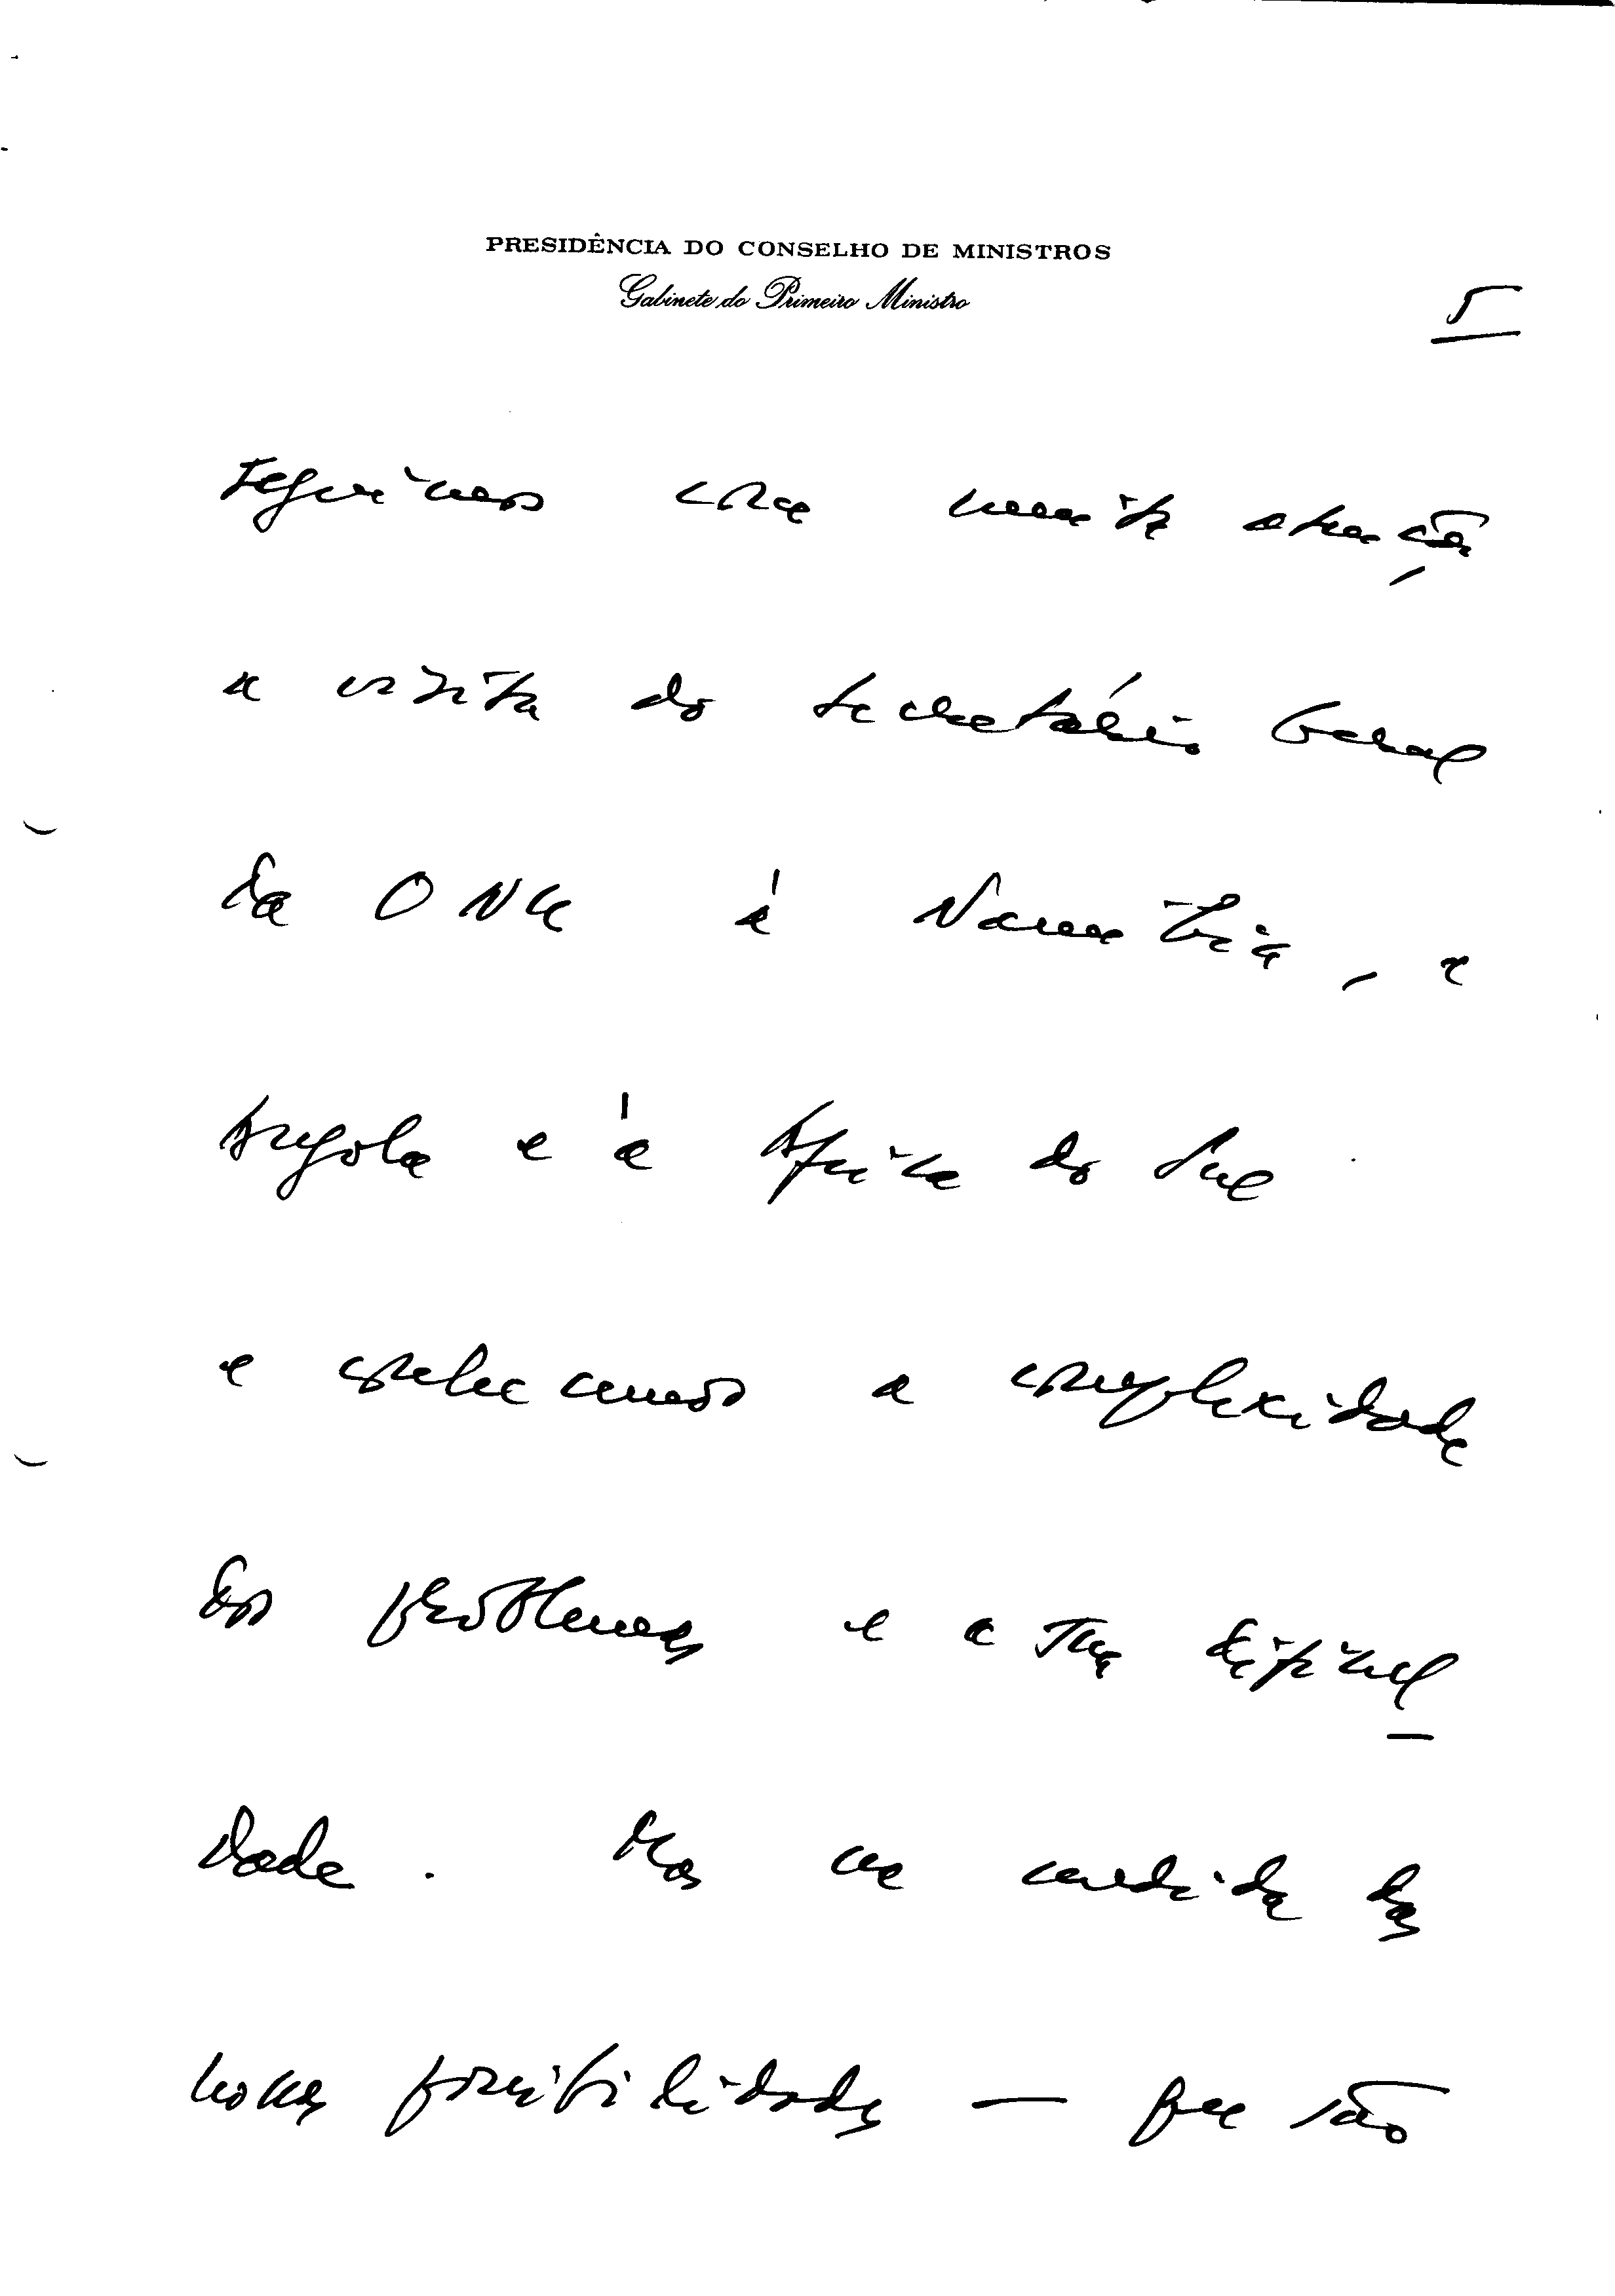 PRESIDÊNCIA DO CONSELHO DE MINISTROS
Gabinete do Primeiro Ministro
5
Seguimos com muita atenção
a visita do Secretário Geral
da ONU à Namíbia, a
Angola e à África do Sul
e conhecemos a complexidade
dos problemas e a sua dificul_
dade. Mas na medida das
nossas possibilidades — que são